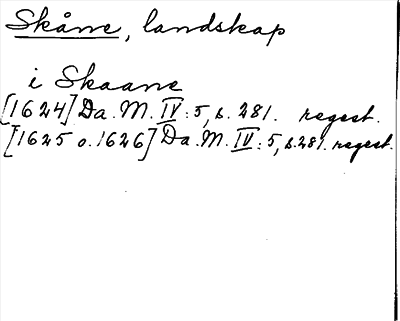 Skåne, landskap
i Skaane
[1624] Da. M. IV: 5, s. 281. regest.
[1625 o. 1626] Da. M. IV: 5, s. 281. regest.